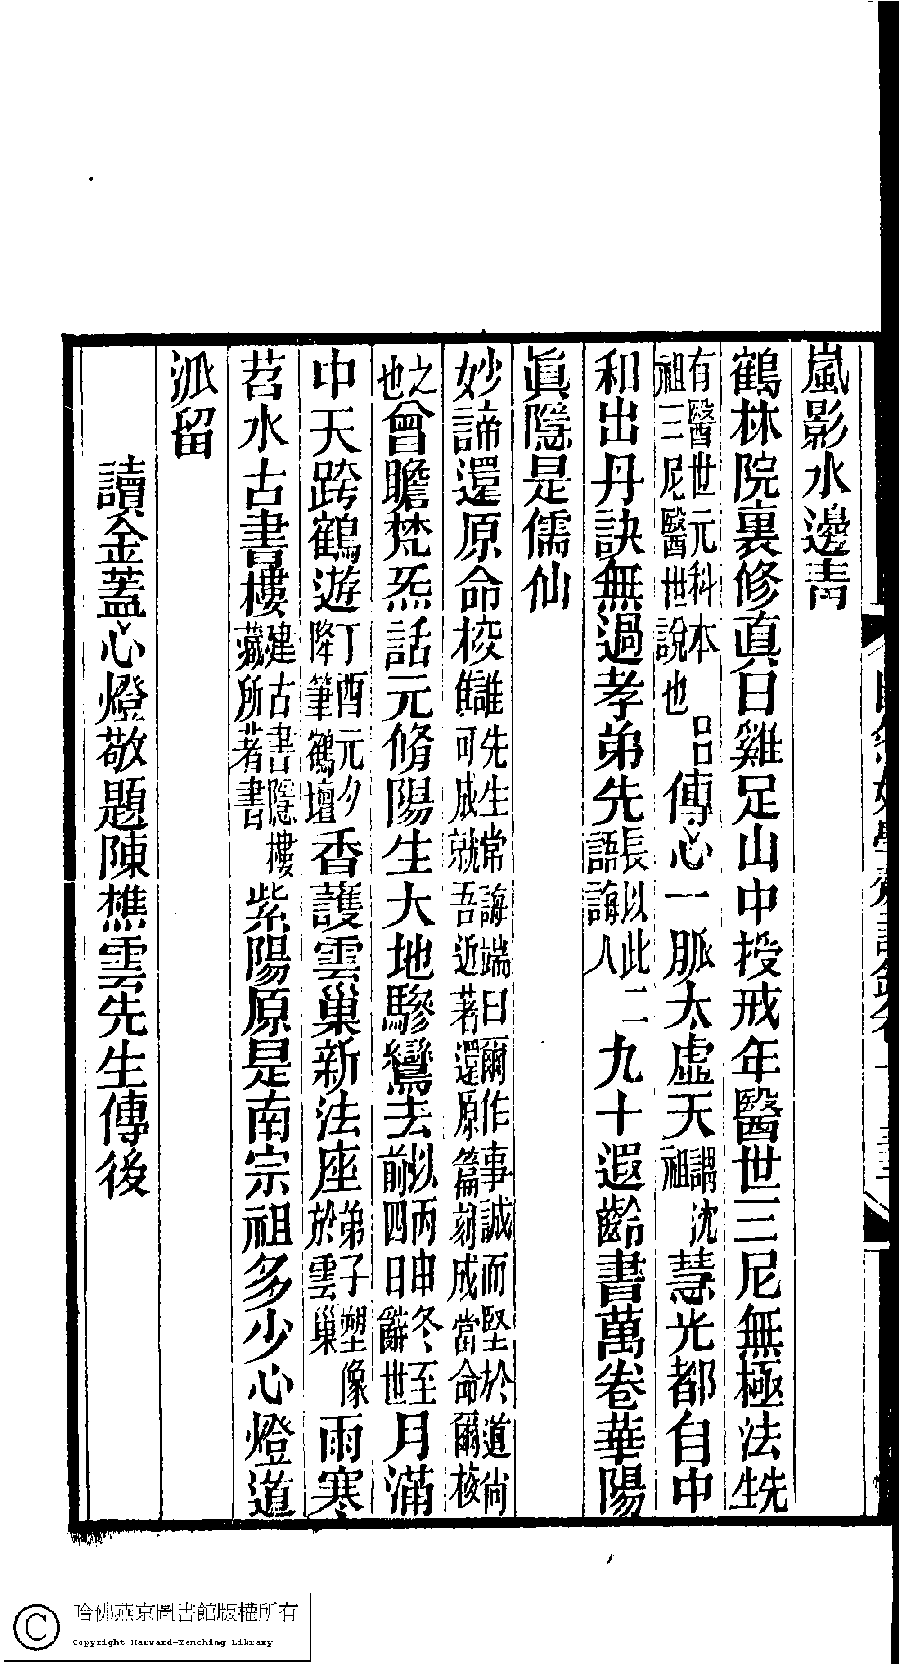 嵐影水邊青
鶴林院裏修真日雞足山中授戒年醫世三尼無極法先生
有醫世元科本祖三尼醫世說也口口傳心一脈太虛天謂沈祖慧光都自中
和出丹訣無過孝弟先長以此二語誨人九十遐齡書萬卷華陽
眞隱是儒仙
妙諦還原命校讎先生常誨端曰爾作事誠而堅於道尚有可成就吾近著還原篇刻成當命爾校
之也曾瞻梵炁話元脩陽生大地驂鸞去以丙申冬至前四日辭世月滿
中天跨鶴遊丁酉元夕降筆鶴壇香護雲巢新法座弟子塑像於雲巢雨寒
苕水古書樓建古書隱樓藏所著書紫陽原是南宗祖多少心燈道
派留
讀金蓋心燈敬題陳樵雲先生傳後